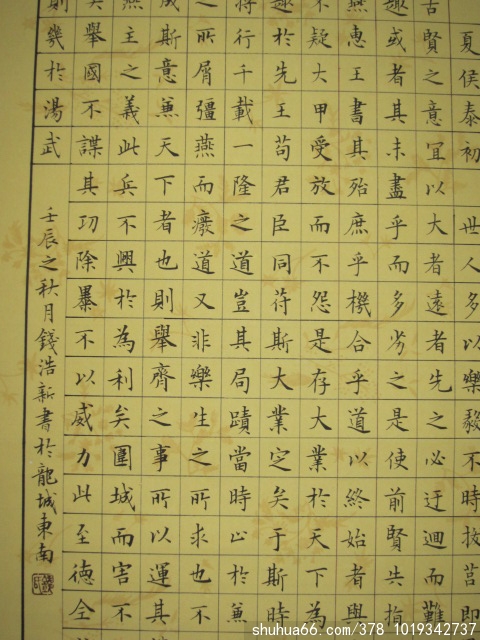 夏侯泰初 世人多以樂毅不時拔莒即
古賢之意宜以大者遠者先之必迂迴而難
趣或者其未盡乎而多劣之是使前賢失指
燕惠王書其殆庶乎機合乎道以終始者與
不疑大甲受放而不怨是存大業於天下為
趣於先王苟君臣同苻斯大業定矣于斯時
將行千載一隆之道豈其局蹟當時止於兼
之所屑彊燕而廢道又非樂生之所求也不
成斯意兼天下者也則舉齊之事所以運其
燕主之義此兵不興於為利矣圍城而害不
矣舉國不謀其功除暴不以威力此至德全
則幾於湯武
壬辰之秋月錢浩新書於龍城東南
shuhua66.com/378_1019342737